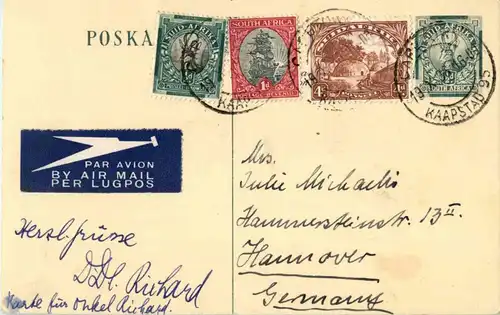 POSKA
SOUTH AFRICA
1d
4d
KAAPSTAD
PAR AVION
BY AIR MAIL
PER LUGPOS
Mrs.
Julie Michaelis
Hammersteinstr. 13 II
Hannover
Germany
Herzl. Grüsse
Richard
Karte für Onkel Richard.